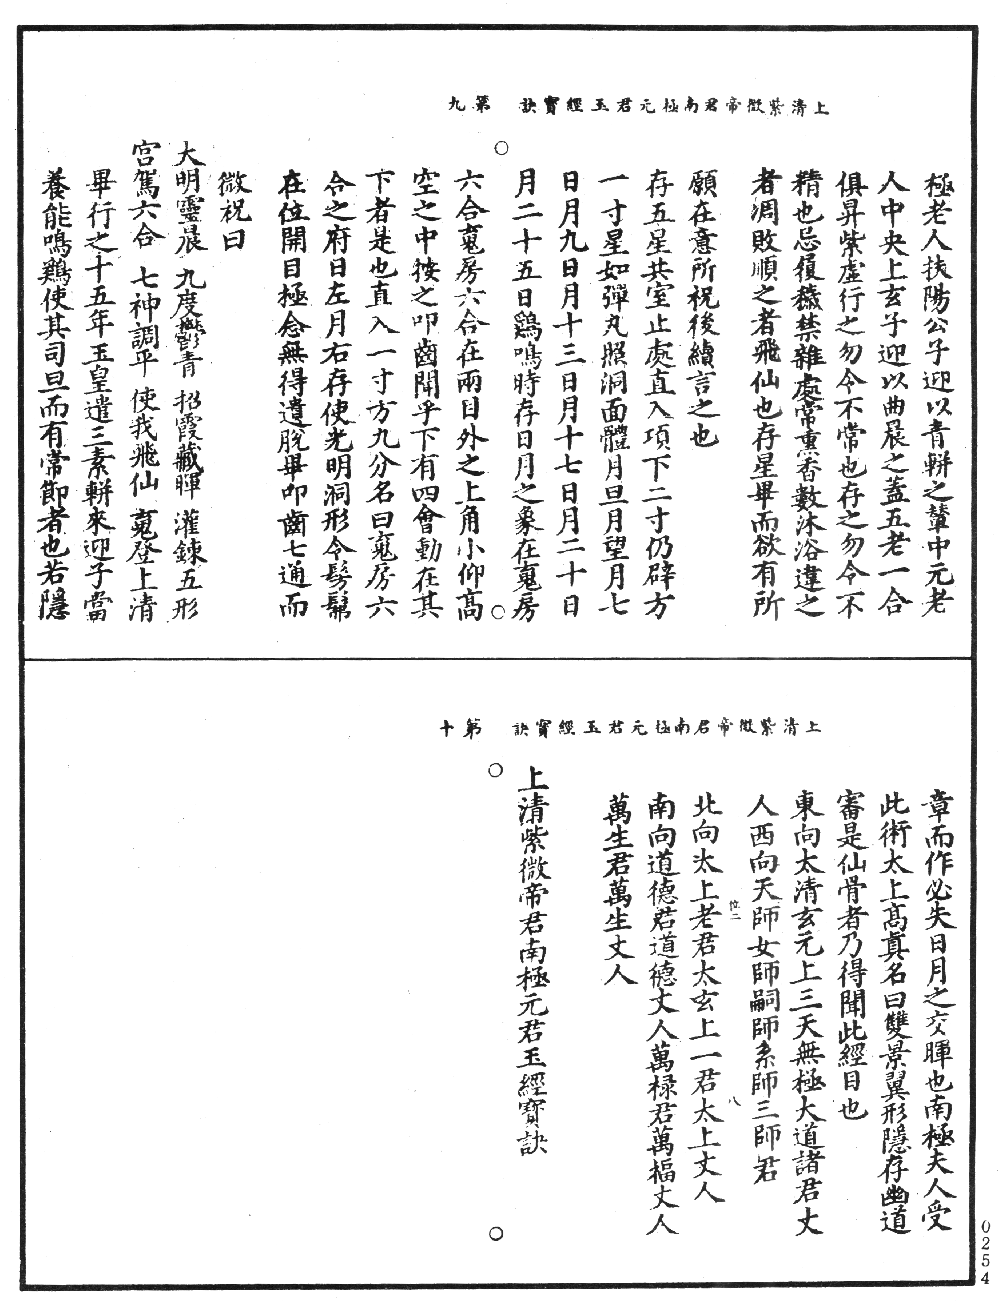 上清紫微帝君南極元君玉經寶訣　第九
極老人扶陽公子迎以青軿之輦中元老
人中央上玄子迎以曲晨之蓋五老一合
俱昇紫虛行之勿令不常也存之勿令不
精也忌履穢禁雜處常熏香數沐浴違之
者凋敗順之者飛仙也存星畢而欲有所
願在意所祝後續言之也
存五星共室止處直入項下二寸仍辟方
一寸星如彈丸照洞面體月旦月望月七
日月九日月十三日月十七日月二十日
月二十五日鷄鳴時存日月之象在寬房
六合寬房六合在兩目外之上角小仰高
空之中按之叩齒聞乎下有四會動在其
下者是也直入一寸方九分名曰寬房六
合之府日左月右存使光明洞形令髣髴
在位開目極念無得遺脫畢叩齒七通而
微祝曰
大明靈晨　九度鬱青　招霞藏暉　灌鍊五形
宮駕六合　七神調平　使我飛仙　寬登上清
畢行之十五年玉皇遣三素軿來迎子當
養能鳴鷄使其司旦而有常節者也若隱
上清紫微帝君南極元君玉經寶訣　第十
章而作必失日月之交暉也南極夫人受
此術太上高真名曰雙景翼形隱存幽道
審是仙骨者乃得聞此經目也
東向太清玄元上三天無極大道諸君丈
人西向天師女師嗣師系師三師君
位二
八
北向太上老君太玄上一君太上丈人
南向道德君道德丈人萬祿君萬福丈人
萬生君萬生丈人
上清紫微帝君南極元君玉經寶訣
0254